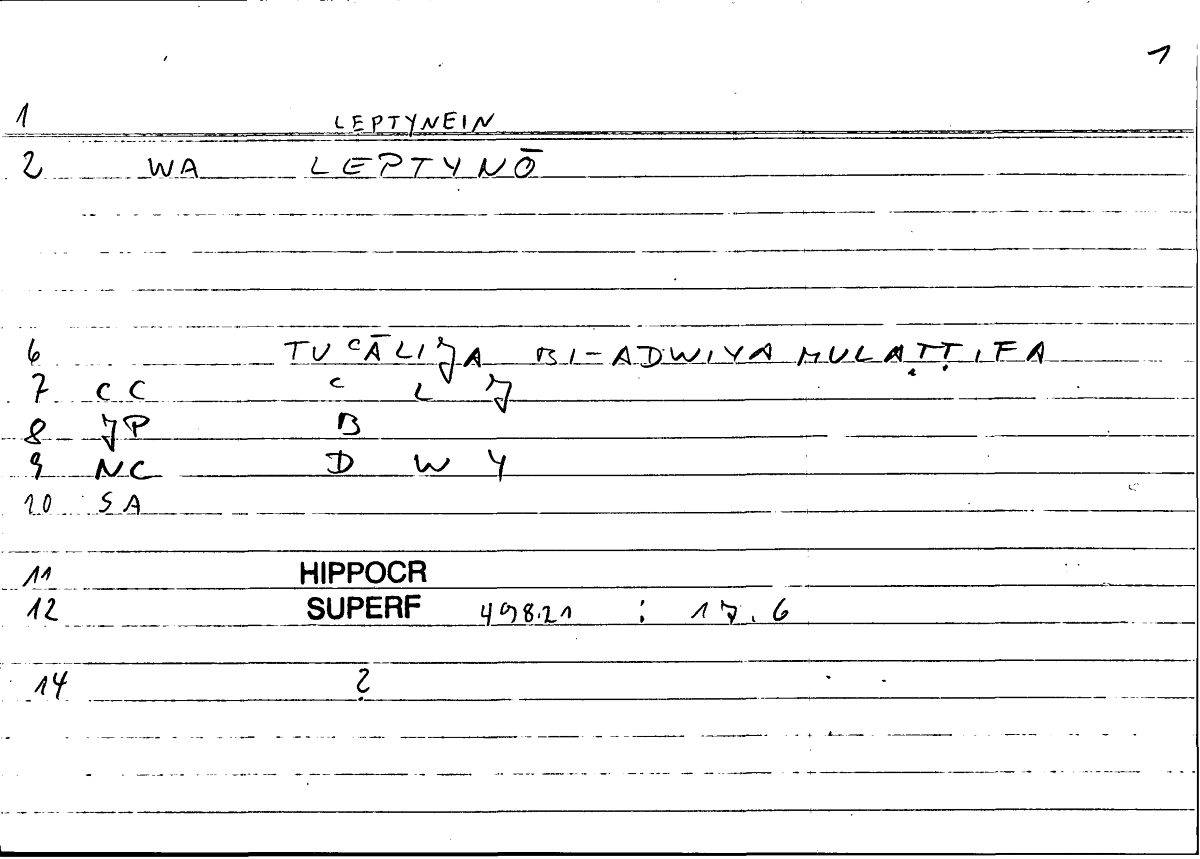 1
1 LEPTYNEIN
2 WA LEPTYNŌ
6 TUʿĀLIJA BI-ADWIYA MULAṬṬIFA
7 CC ʿ L J
8 JP B
9 NC D W Y
10 SA
11 HIPPOCR
12 SUPERF 498.21 : 17.6
14 ?